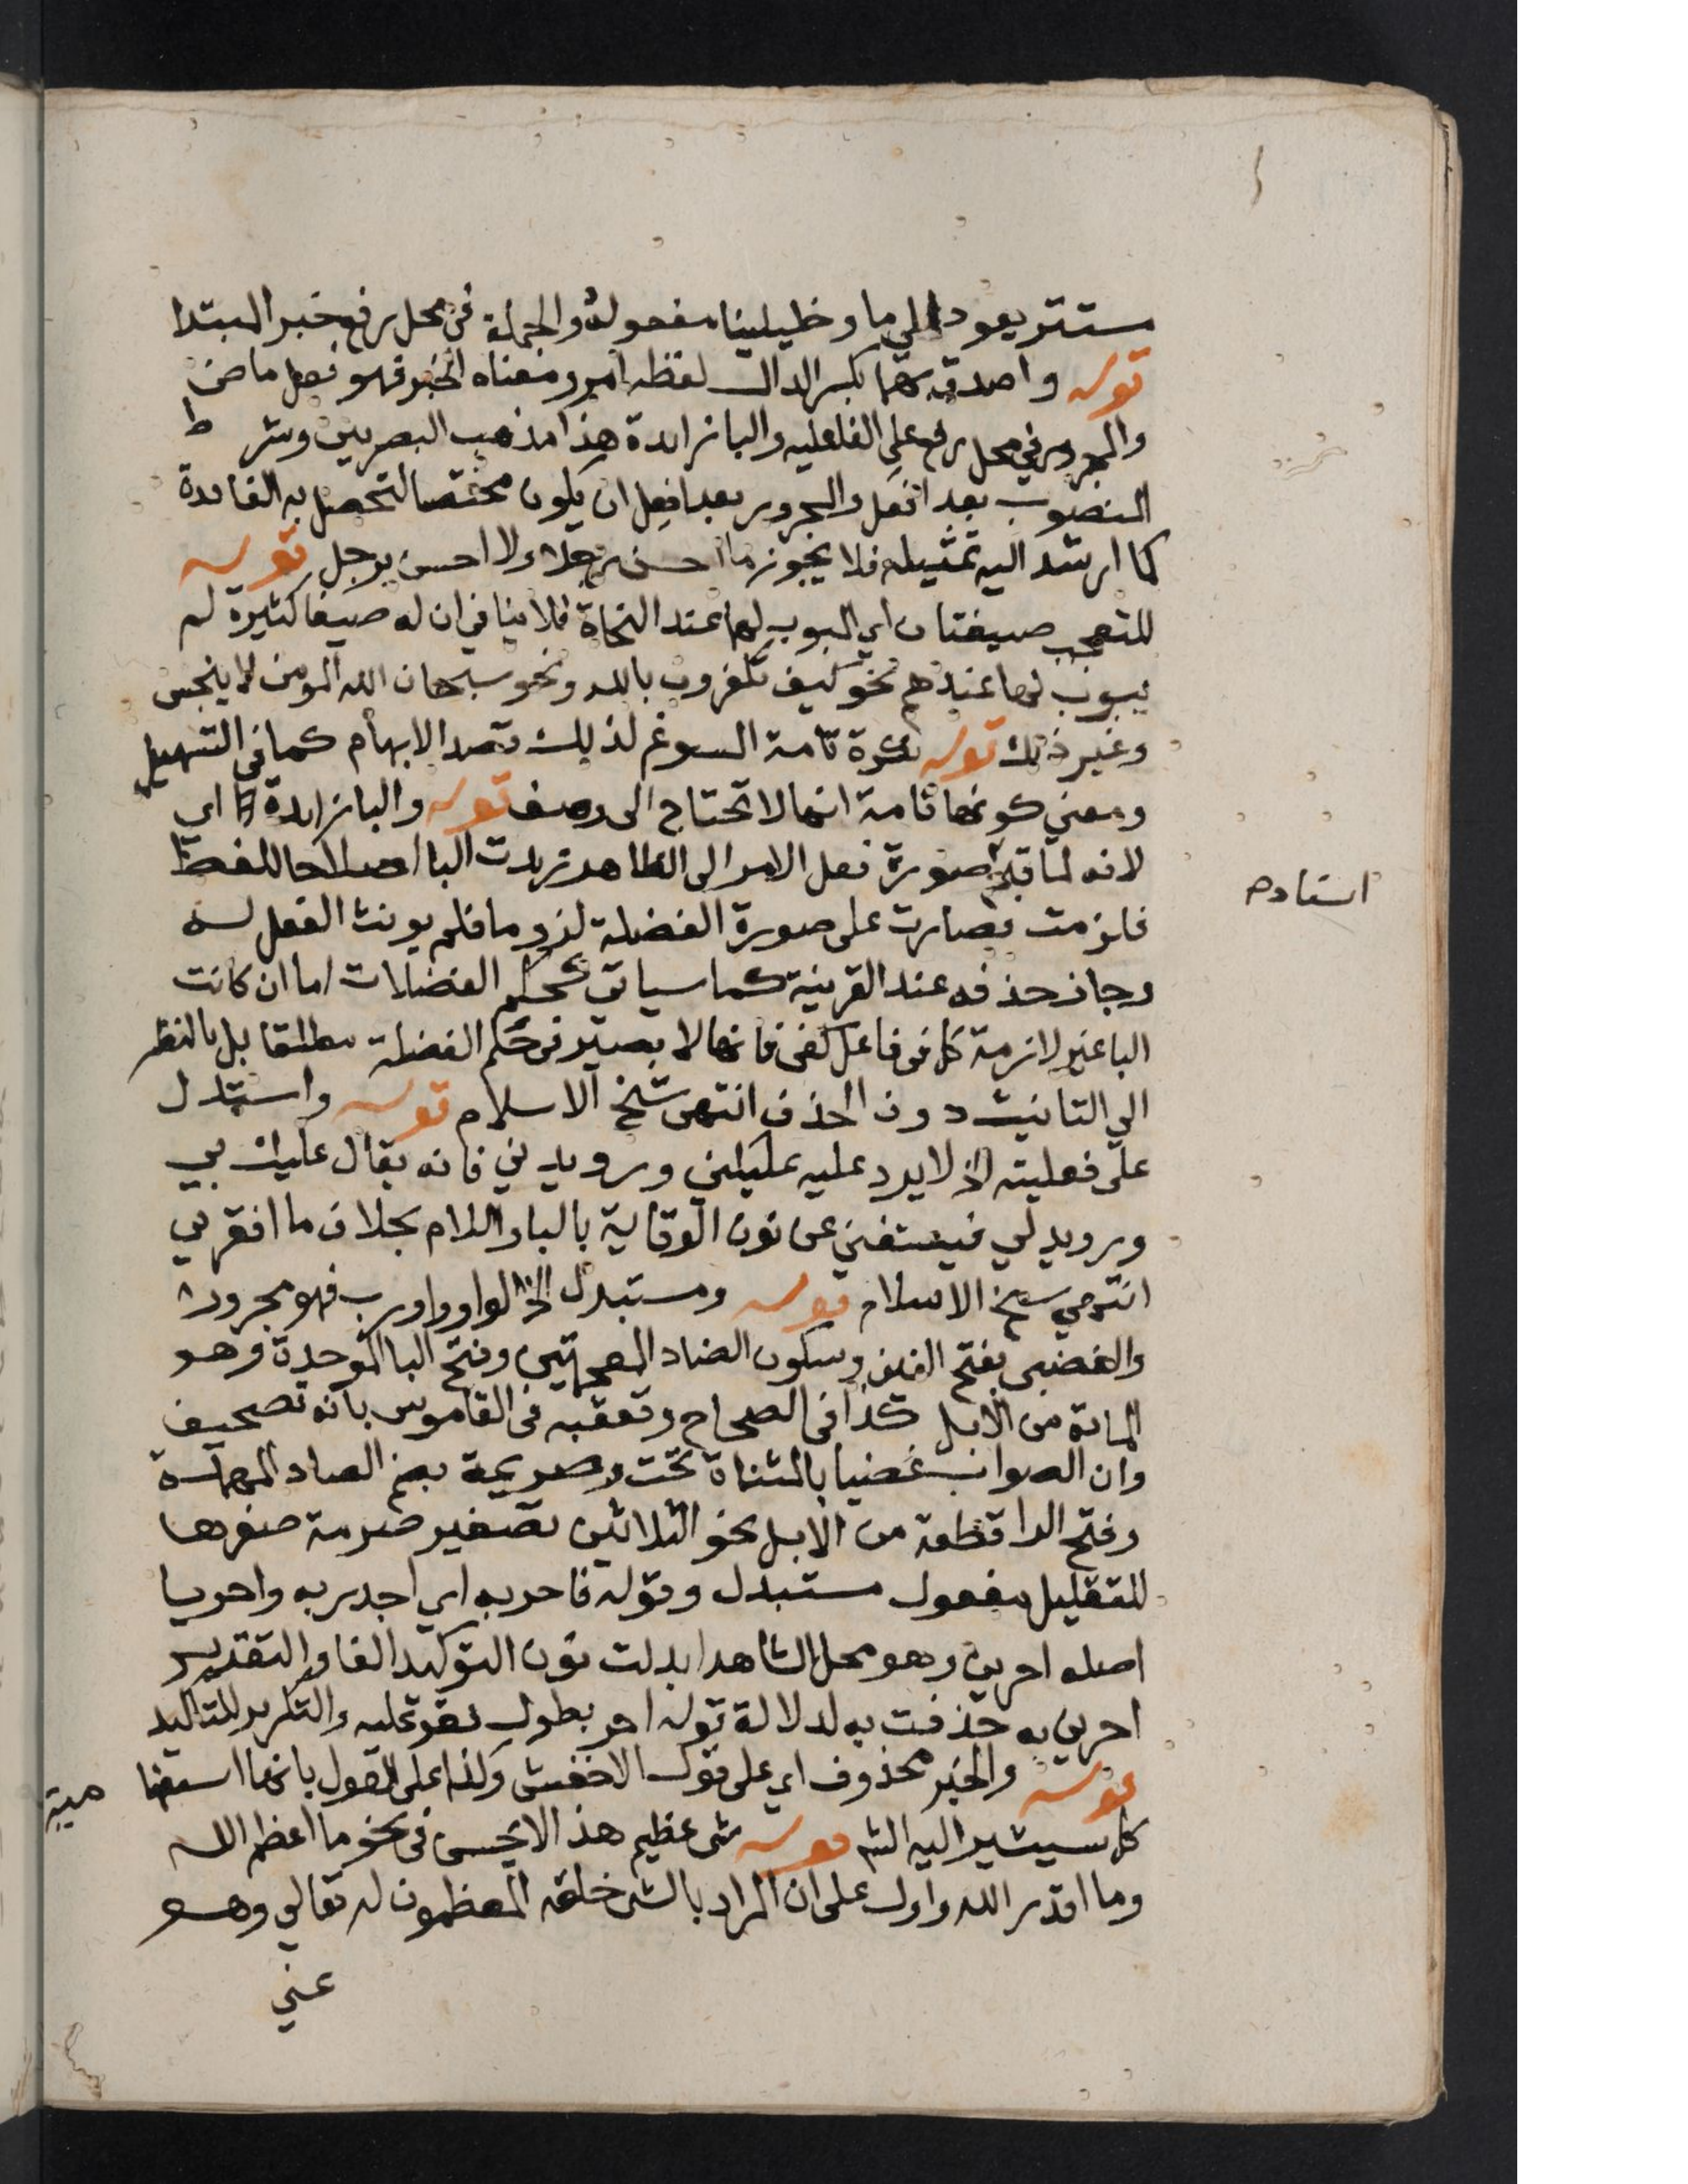 مستتر يعود الى ما وخليلينا مفعوله والجملة فى محل رفع خبر المبتدا
قوله واصدق بهما بكسر الدال لفظه امر ومعناه الخبر فهو فعل ماض
والمجرور في محل رفع على الفاعليه والبا زايدة هذا مذهب البصريين وشرط
المنصوب بعد افعل والمجرور بعد افعل ان يكون مختصا لتحصل به الفايدة
كما ارشد اليه تمثيله فلا يجوز ما احسن رجلا ولا احسن برجل قوله
للتعجب صيغتان اي المبوب لهما عند النحاة فلا ينافي ان له صيغا كثيرة لم
يبوب لها عندهم نحو كيف تكفرون بالله ونحو سبحان الله المومن لا ينجس
وغير ذلك قوله نكرة تامة المسوغ لذلك قصد الابهام كما في التسهيل
ومعني كونها تامة انها لا تحتاج الى وصف قوله والبا زايدة اي
لانه لما نقل صورة فعل الامر الى الظاهر زيدت البا اصلاحا للفظ
فلزمت فصارت على صورة الفضلة لزوما فلم يونث الفعل له
وجاز حذفه عند القرينة كما سياتي كحكم الفضلات اما ان كانت
البا غير لازمة كما فى فاعل كفى فانها لا يصير في حكم الفضلة مطلقا بل بالنظر
الي التانيث دون الحذف انتهى شيخ الاسلام قوله واستدل
على فعليته الخ لا يرد عليه عليكني ورويدني فانه يقال عليك بي
ورويد لي فيستغني عن نون الوقاية بالبا واللام بخلاف ما افقر بي
انتهي شيخ الاسلام قوله ومستبدل الخ الواو واو رب فهو مجرور
والغضبى بفتح الغين وسكون الضاد المعجمتين وفتح البا الموحدة وهو
الماية من الابل كذا فى الصحاح وتعقبه فى القاموس بانه تصحيف
وان الصواب غضيا بالمثناة تحت وصريمة بضم الصاد المهملة
وفتح الرا قطعة من الابل نحو الثلاثين تصغير صرمة صغرها
للتقليل مفعول مستبدل وقوله فاحر به اي اجدر به واحريا
اصله احرين وهو محل الشاهد ابدلت نون التوكيد الفا والتقدير
احرين به حذفت به لدلالة قوله احر بطول فقر عليه والتكرير للتاكيد
قوله والخبر محذوف اي على قول الاخفش وكذا على القول بانها استفها مية
كما سيشير اليه الشم قوله شى عظيم هذا لا يحسن فى نحو ما اعظم الله
وما اقدر الله واول على ان المراد بالشى خلقه المعظمون له تعالي وهو
عني
استاده